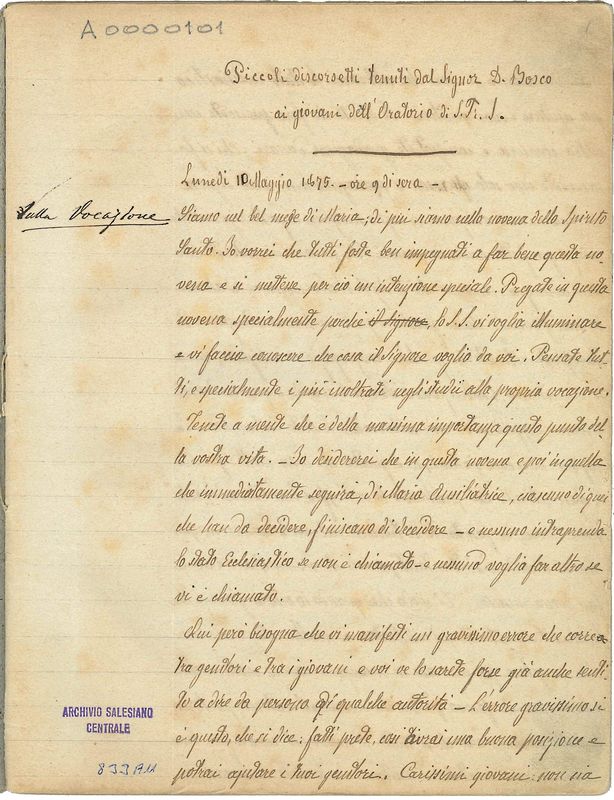 A0000101
Piccoli discorsetti tenuti dal Signor D. Bosco
ai giovani dell'Oratorio di S. Fr. S.
Lunedì 10 Maggio 1875. - ore 9 di sera -
Sulla Vocazione
Siamo nel bel mese di Maria; di più siamo nella novena dello Spirito
Santo. Io vorrei che tutti foste ben impegnati a far bene questa no
vena e si mettesse perciò un intenzione speciale. Pregate in questa
novena specialmente perchè il Signore, lo S. S. vi voglia illuminare
e vi faccia conoscere che cosa il Signore voglia da voi. Pensate tut
ti, e specialmente i più inoltrati negli studii alla propria vocazione.
Tenete a mente che è della massima importanza questo punto del
la vostra vita. - Io desidererei che in questa novena e poi in quella
che immediatamente seguirà, di Maria Ausiliatrice, ciascuno di quei
che han da decidere, finiscano di decidere - e nessuno intraprenda
lo stato Ecclesiastico se non è chiamato - e nessuno voglia far altro se
vi è chiamato.
Qui però bisogna che vi manifesti un gravissimo errore che corre
tra genitori e tra i giovani e voi ve lo sarete forse già anche senti
to a dire da persona di qualche autorità - L'errore gravissimo si
è questo, che si dice: fatti prete, così avrai una buona posizione e
potrai ajutare i tuoi genitori. Carissimi giovani: non sia
ARCHIVIO SALESIANO
CENTRALE